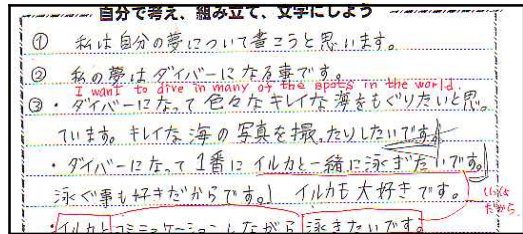 自分で考え、組み立て、文字にしよう
① 私は自分の夢について書こうと思います。
② 私の夢はダイバーになる事です。
I want to dive in many of the spots in the world.
③・ダイバーになって色々なキレイな海をもぐりたいと思っ
ています。キレイな海の写真を撮ったりしたいです。
・ダイバーになって1番にイルカと一緒に泳ぎたいです。
泳ぐ事も好きだからです。 イルカも大好きです。
だから
・イルカとコミュニケーションしながら泳ぎたいです。